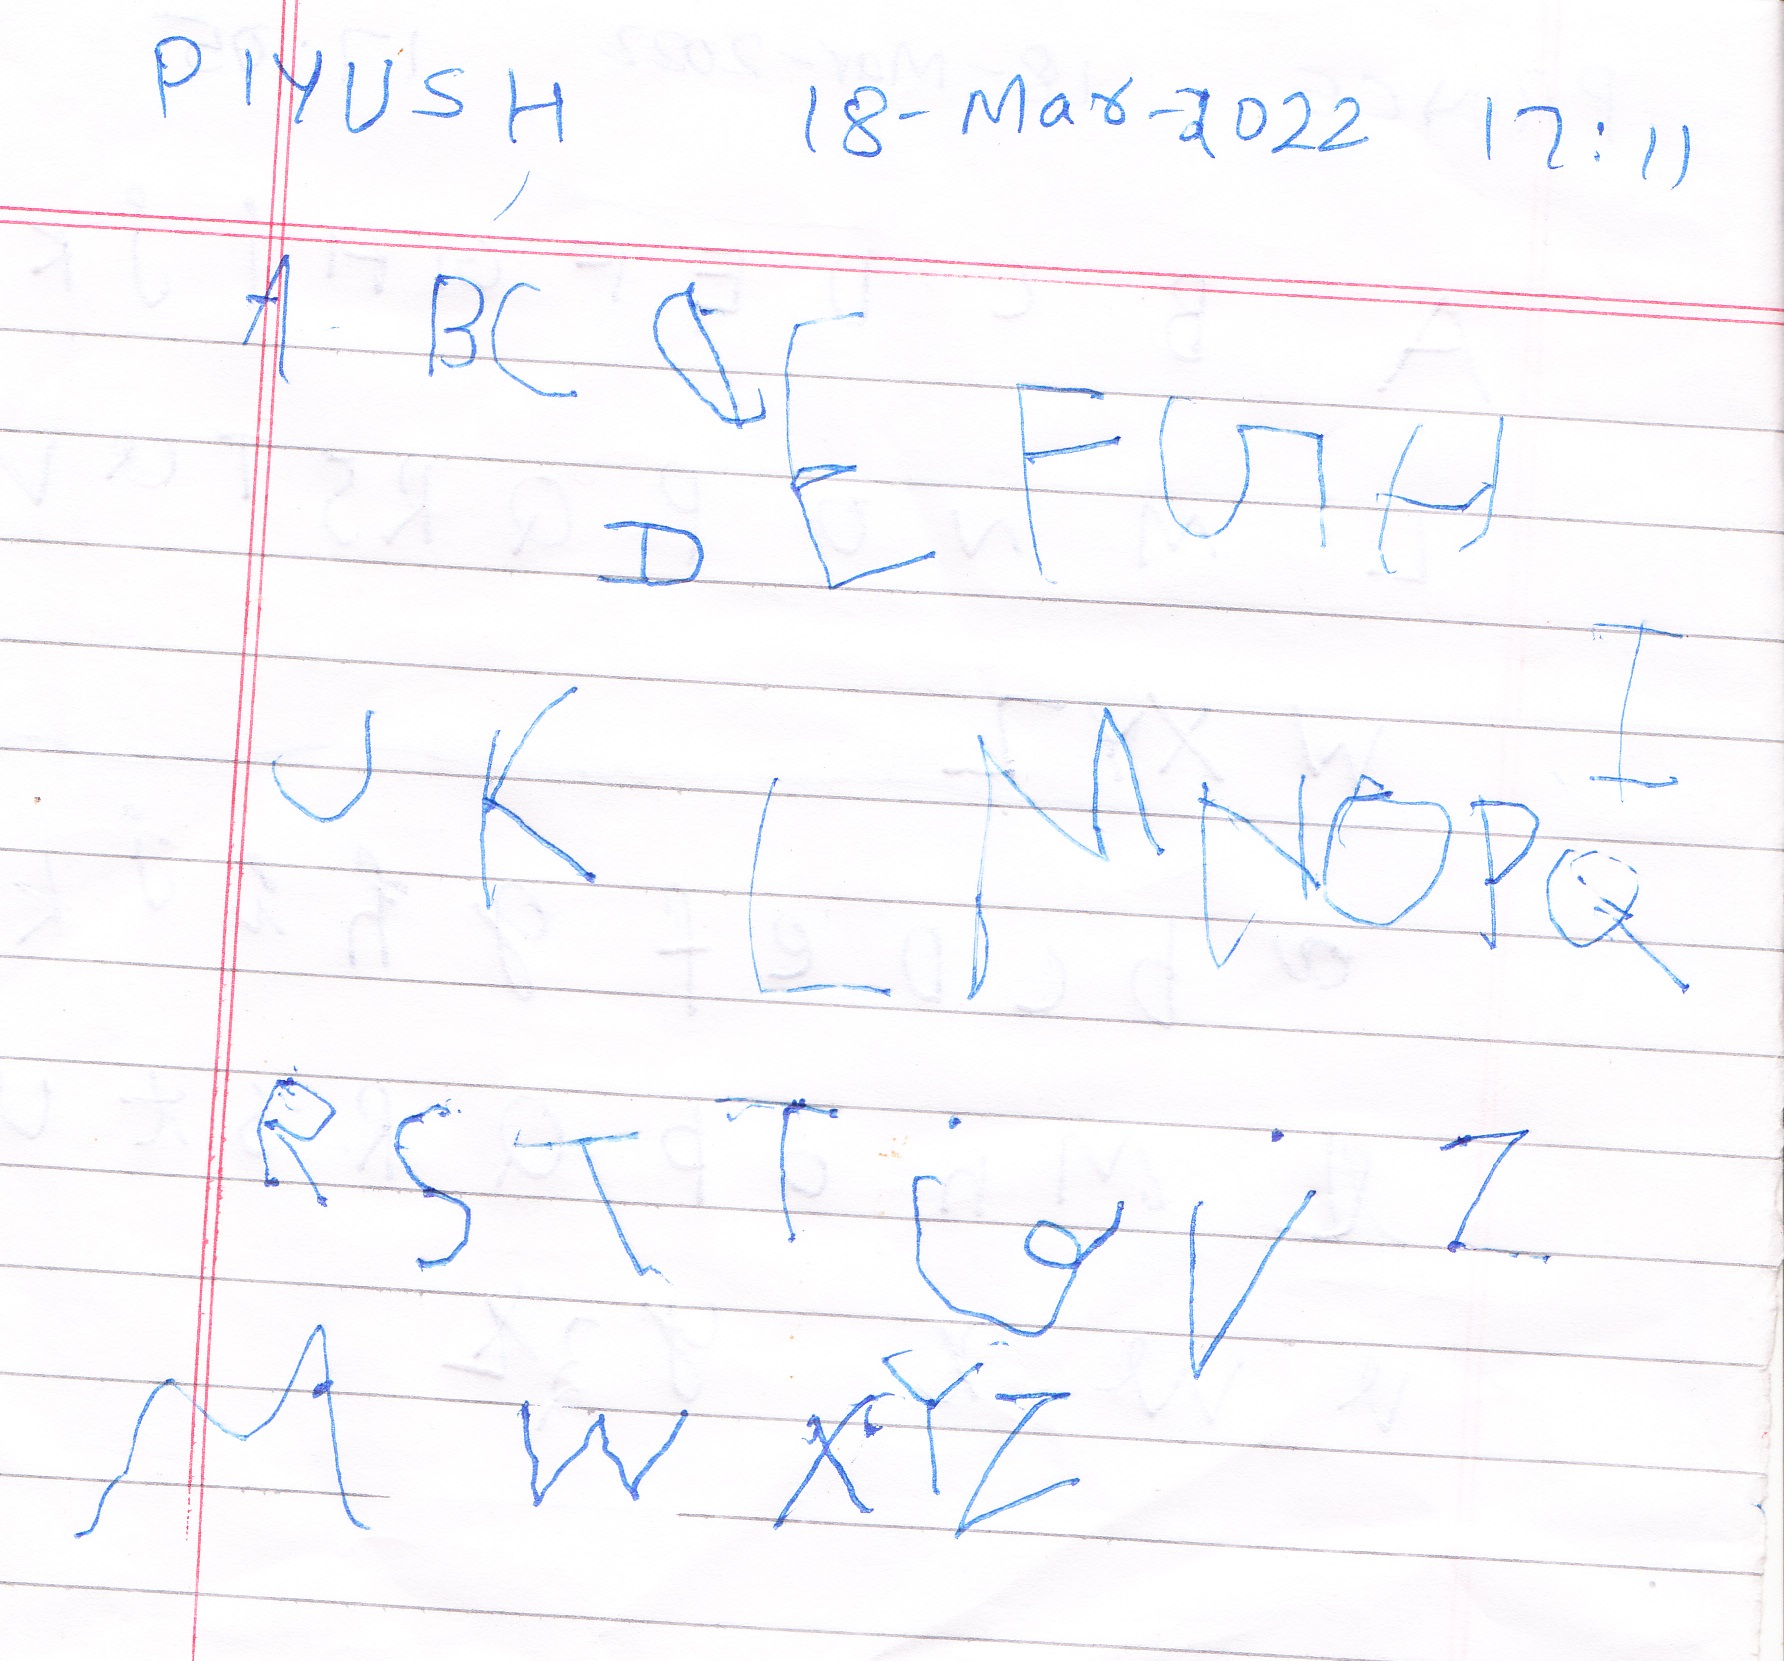 PIYUSH 18-Mar-2022 17:11
A BC E F G H
D
I
J K L M N O P Q
R S T T U V Z
M W X Y Z